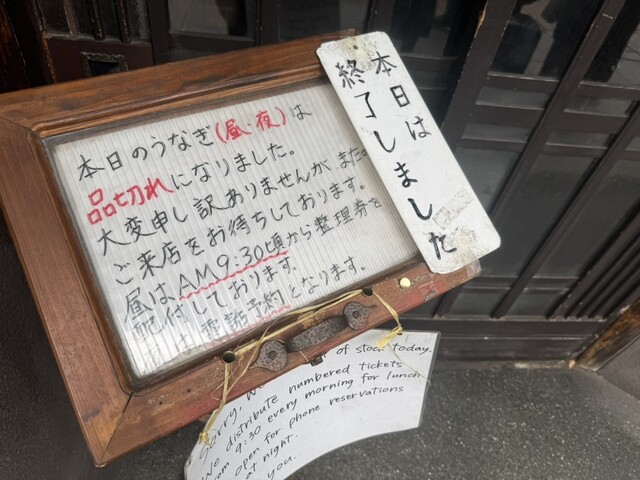 本日は
終了しました
本日のうなぎ(昼・夜)は
品切れになりました。
大変申し訳ありませんが、また
ご来店をお待ちしております。
昼はAM9:30頃から整理券を
配付しております。
電話予約となります。
Sorry, of stock today.
We distribute numbered tickets
9:30 every morning for lunch
open for phone reservations
at night.
you.